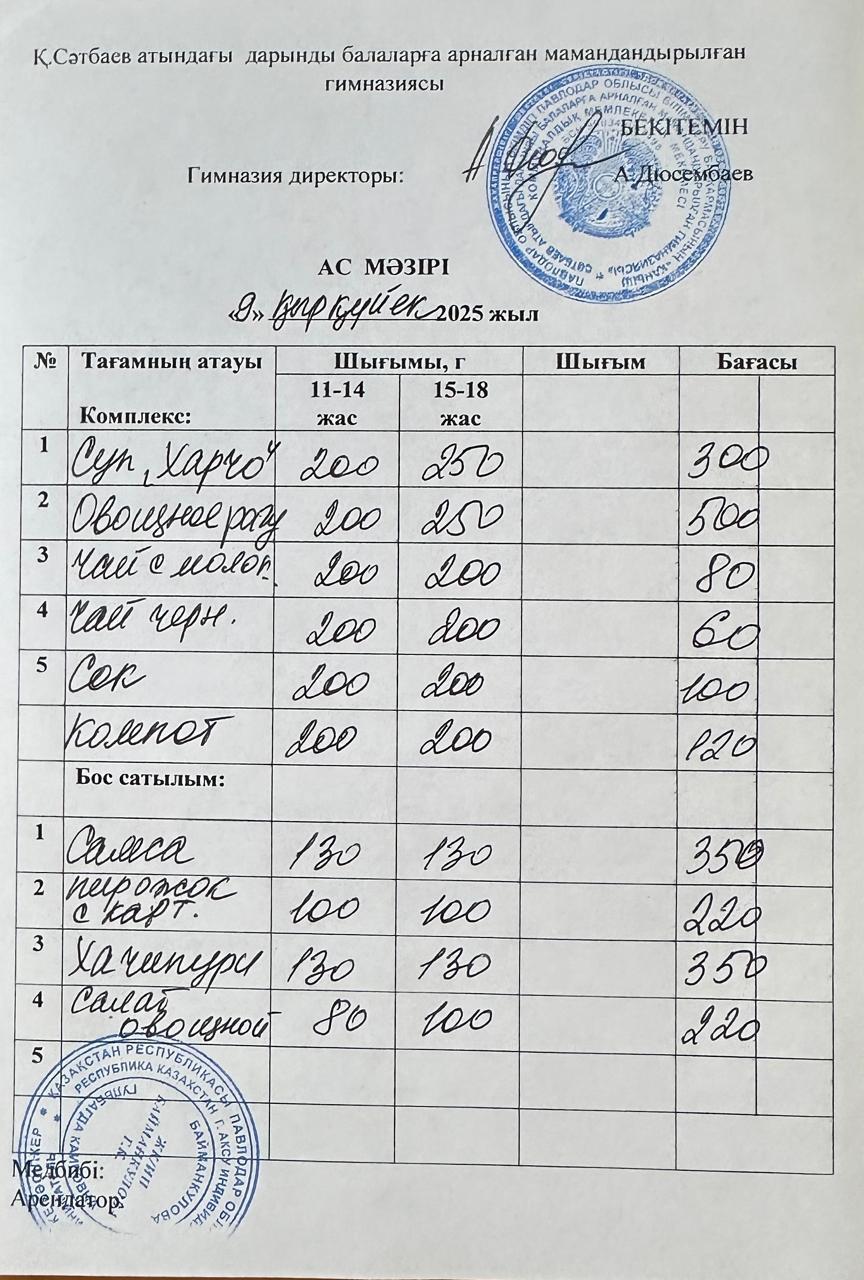 Қ.Сәтбаев атындағы дарынды балаларға арналған мамандандырылған
гимназиясы
БЕКІТЕМІН
Гимназия директоры: А.Дюсембаев
АС МӘЗІРІ
«9» қыркүйек 2025 жыл
№ Тағамның атауы Шығымы, г Шығым Бағасы
Комплекс: 11-14 жас 15-18 жас
1 Суп „Харчо" 200 250 300
2 Овощное рагу 200 250 500
3 Чай с молок. 200 200 80
4 Чай черн. 200 200 60
5 Сок 200 200 100
Компот 200 200 120
Бос сатылым:
1 Самса 130 130 350
2 пирожок
с карт. 100 100 220
3 Хачипури 130 130 350
4 Салат
овощной 80 100 220
5
ҚАЗАҚСТАН РЕСПУБЛИКАСЫ ПАВЛОДАР ОБЛ
РЕСПУБЛИКА КАЗАХСТАН Г. АКСУ ИНДИВИД
БАЙМАНКУЛОВА
Медбибі:
Арендатор: